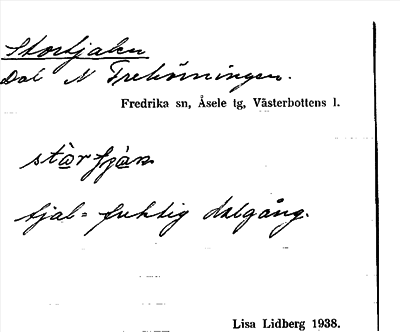 Stortjalen
Dal N Trehörningen.
Fredrika sn, Åsele tg, Västerbottens l.
tjal = fuktig dalgång.
Lisa Lidberg 1938.